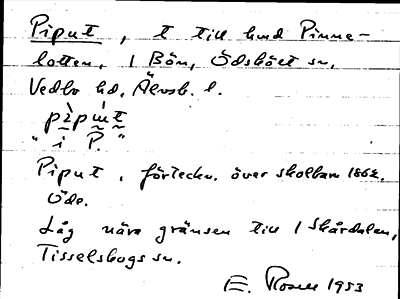 Piput, t till hmd Pinne-
lotten, 1 Bön, Ödsköet sn,
Vedbo hd, Älvsb. l.
pìpút
" i P. "
Piput, förteckn. över skolbarn 1862.
Öde.
Låg nära gränsen till 1 Skårdalen,
Tisselskogs sn.
E. Rosell 1953